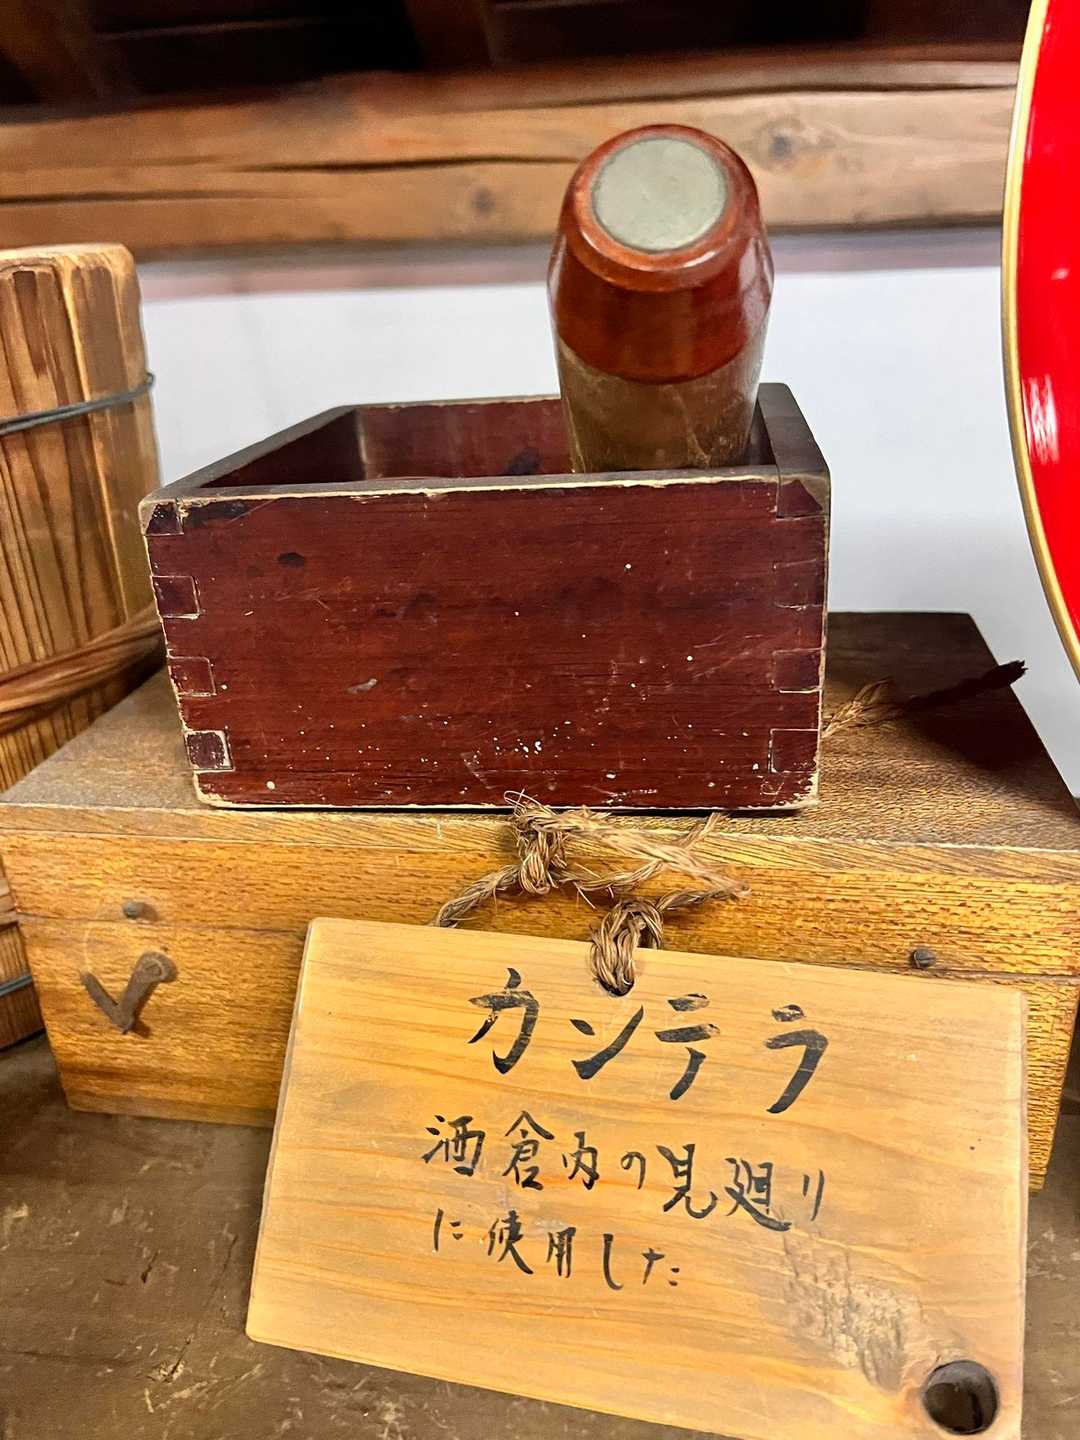 カンテラ
酒倉内の見廻り
に使用した